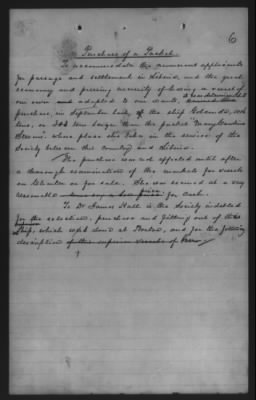 6
Purchase of a Packet
To accommodate the numerous applicants
for passage and settlement in Liberia, and the great
economy and pressing necessity of having a vessel of
our own and adapted to our wants, it was determined to
purchase, in September last, the ship Golconda, 1016
tons, or 300 tons larger than the packet "Mary Caroline
Stevens" whose place she takes in the service of the
Society between this country and Liberia.
The purchase was not effected until after
a thorough examination of the markets for vessels
on the or for sale. She was secured at a very
reasonable for cash.
To Dr James Hall is the Society indebted
for the selection, purchase and fitting out of the
Ship, which was done at Boston, and for the following
description